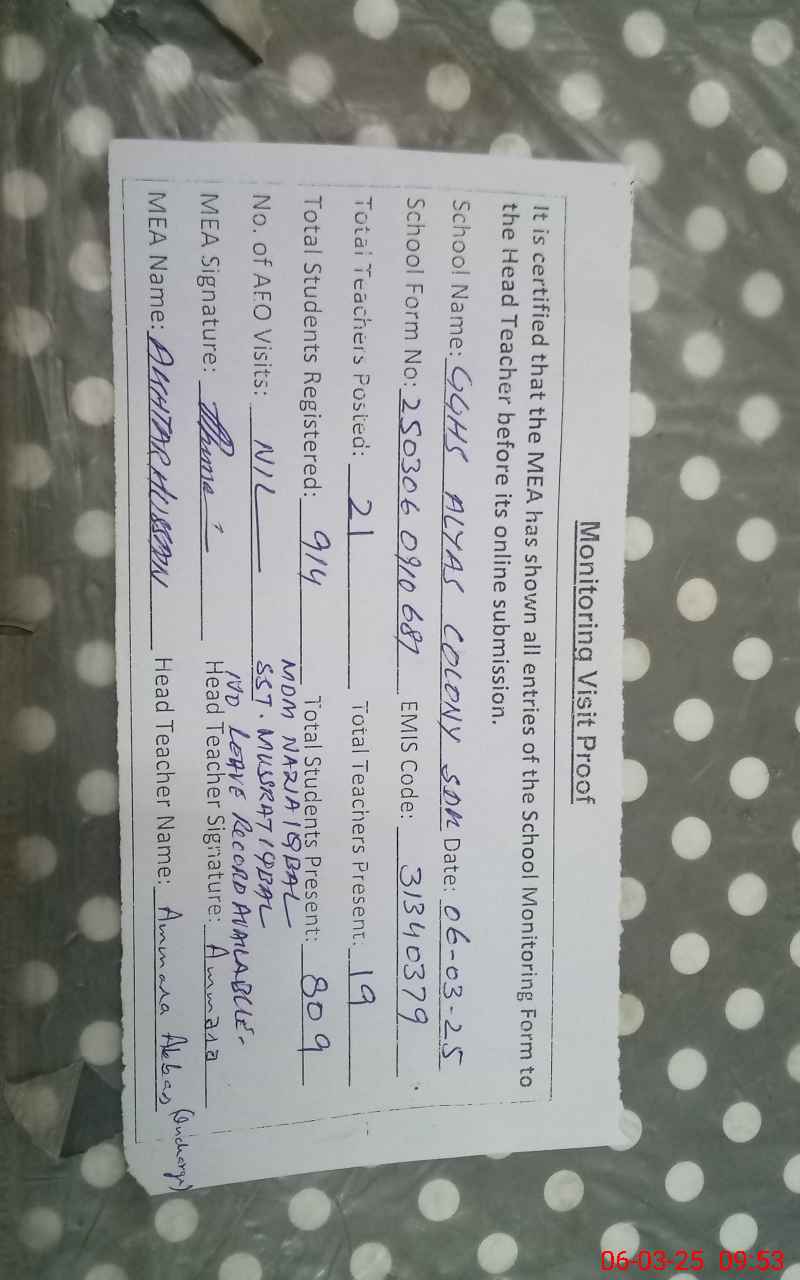 Monitoring Visit Proof
It is certified that the MEA has shown all entries of the School Monitoring Form to
the Head Teacher before its online submission.
School Name: GGHS ALYAS COLONY SDK Date: 06-03-25
School Form No: 250306 0910 687 EMIS Code: 31340379
Total Teachers Posted: 21 Total Teachers Present: 19
Total Students Registered: 914 Total Students Present: 809
MDM NAZIA IQBAL
No. of AEO Visits: NIL SST. MUSSRAT IQBAL
NO LEAVE RECORD AVAILABLE-
MEA Signature: Head Teacher Signature: Ammara
MEA Name: AKHTAR HUSSAIN Head Teacher Name: Ammara Akbar (Incharge)
06-03-25 09:53